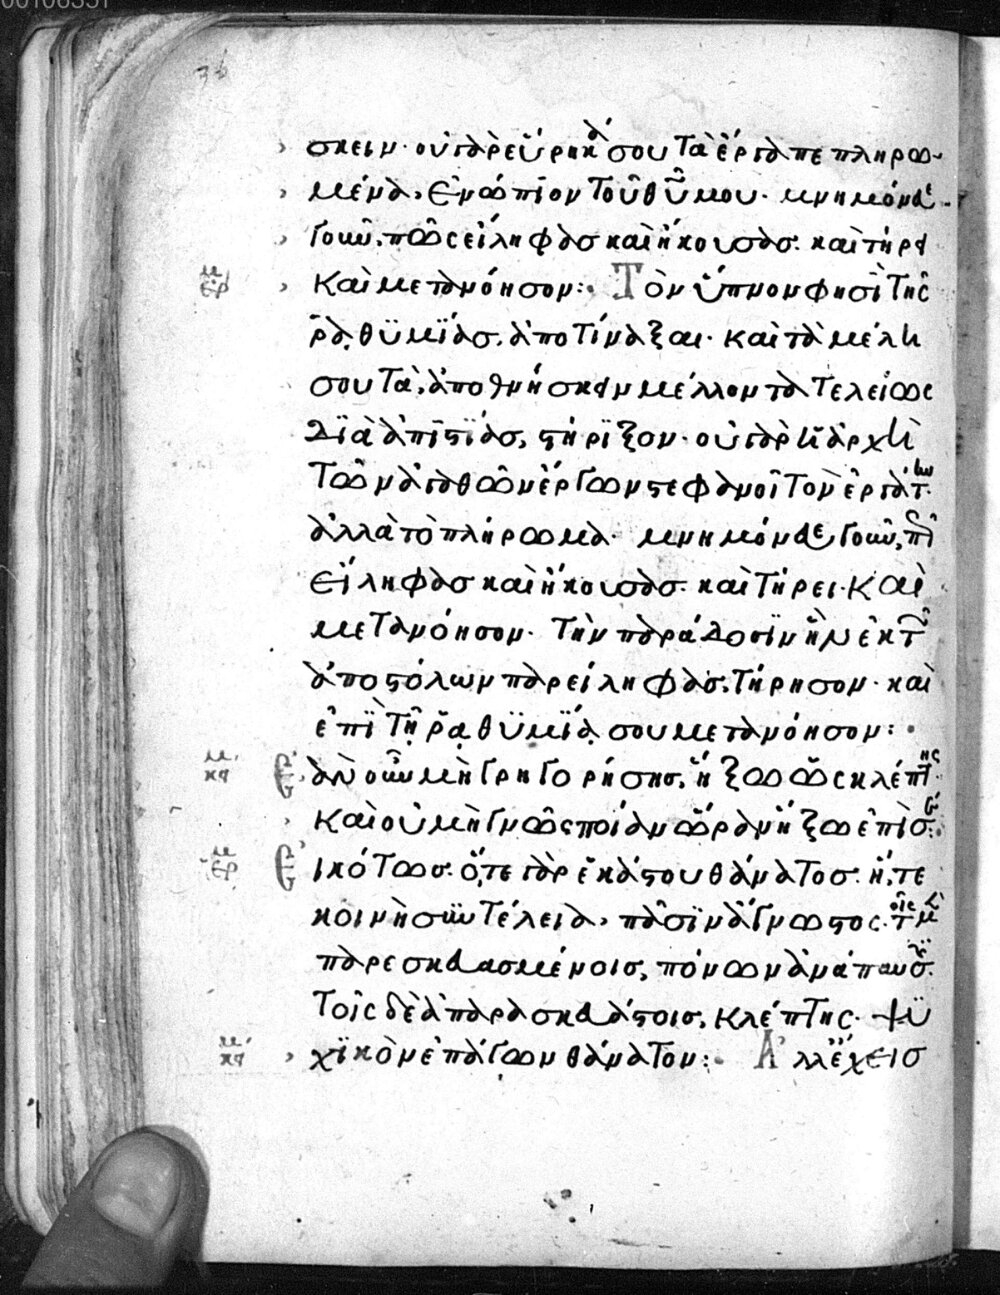 00106351
36
σκειν· οὐ γὰρ εὕρηκά σου τὰ ἔργα πεπληρω-
μένα, ἐνώπιον τοῦ θῦ μου· μνημόνευε
γοῦν, πῶς εἴληφας καὶ ἤκουσας· καὶ τήρει
ερμ καὶ μετανόησον:· Τὸν ὕπνον φησὶ τῆς
ῥαθυμίας, ἀποτίναξαι· καὶ τὰ μέλη
σου τὰ, ἀποθνήσκειν μέλλοντα τελείως
διὰ ἀπιστίας, στήριξον· οὐ γὰρ ἡ ἀρχὴ
τῶν ἀγαθῶν ἔργων στεφανοῖ τὸν ἐργάτην·
ἀλλὰ τὸ πλήρωμα· μνημόνευε γοῦν, πῶς
εἴληφας καὶ ἤκουσας· καὶ τήρει· καὶ
μετανόησον· τὴν παράδοσιν ἣν ἐκ τῶν
ἀποστόλων παρείληφας, τήρησον· καὶ
ἐπὶ τῇ ῥαθυμίᾳ σου μετανόησον:·
κει Ἐὰν οὖν μὴ γρηγορήσῃς, ἥξω ὡς κλέπτης·
καὶ οὐ μὴ γνῷς ποίαν ὥραν ἥξω ἐπὶ σέ:·
ερμ Εἰκότως· ὅ,τε γὰρ ἑκάστου θάνατος· ἥ,τε
κοινὴ συντέλεια, πᾶσιν ἄγνωστος· τοῖς μὲν
παρεσκευασμένοις, πόνων ἀνάπαυσις·
τοῖς δὲ ἀπαρασκευάστοις, κλέπτης· ψυ
κει χικὸν ἐπάγων θάνατον:· Ἀλλ' ἔχεις